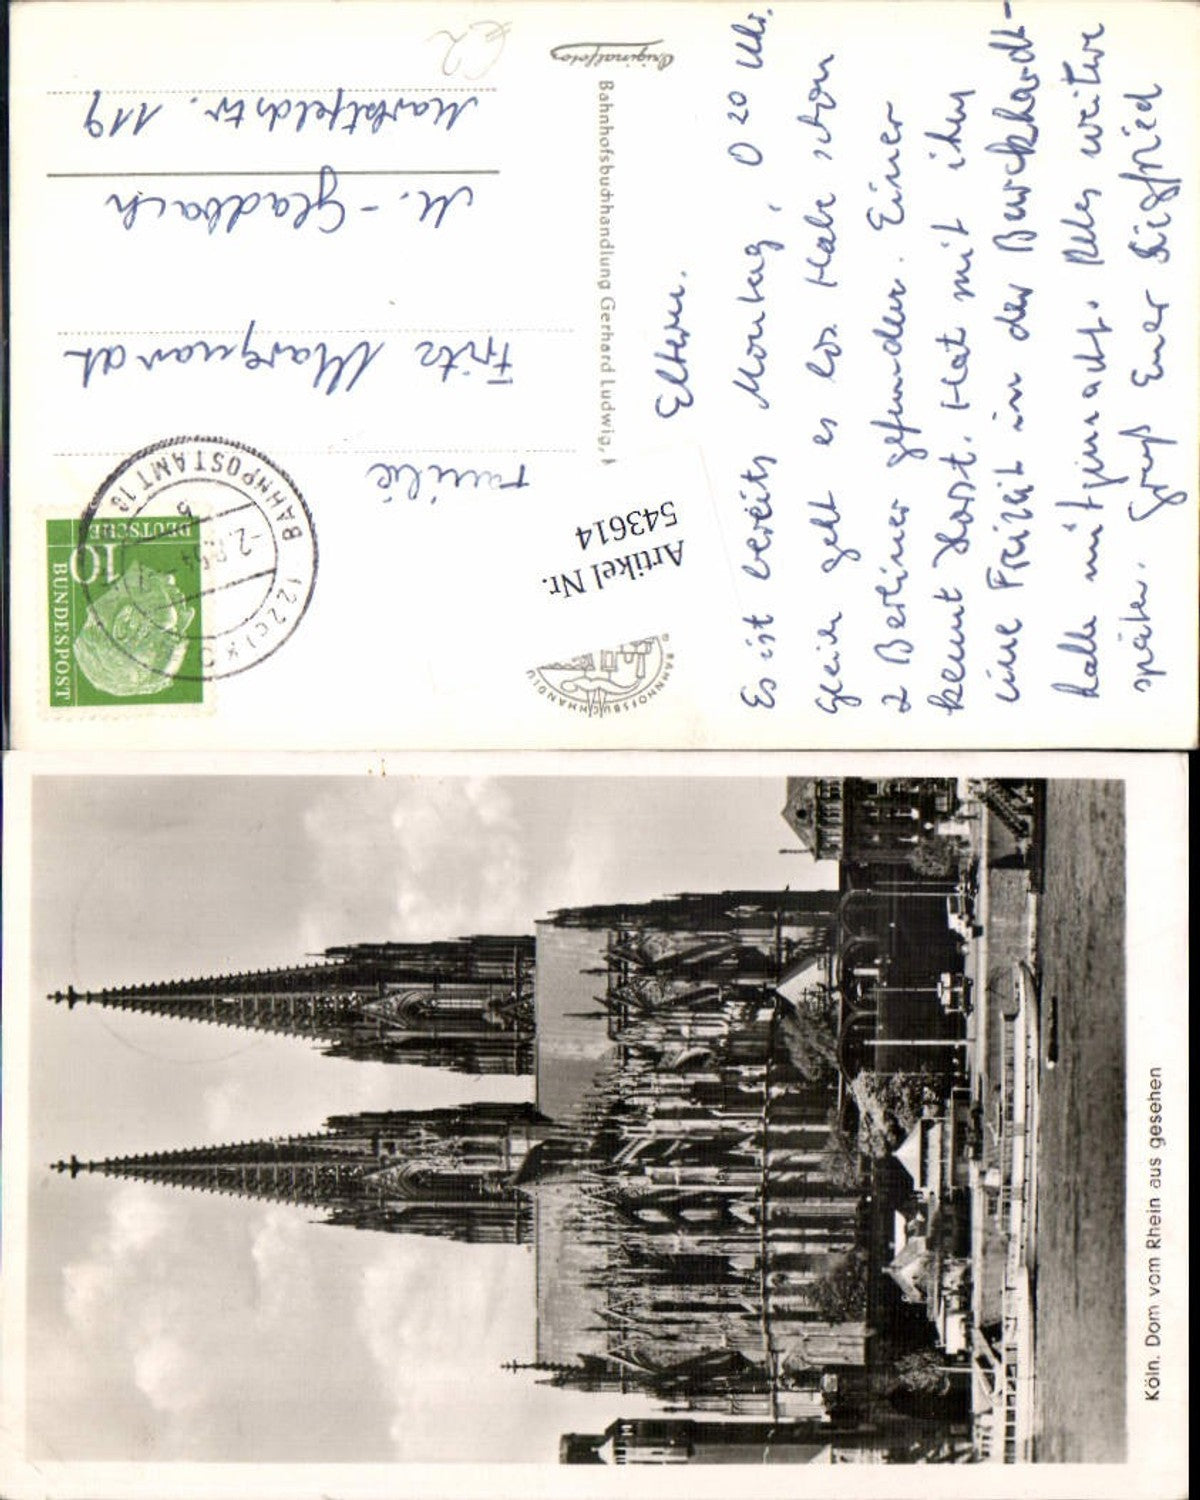 Eltern.
Es ist bereits Montag, 0 20 Uhr.
Gleich geht es los. Habe schon
2 Berliner gefunden. Einer
kennt Horst. Hat mit ihm
eine Freizeit in der Burckhardt-
halle mitgemacht. Alles weitere
später. Gruß Euer Siegfried
Originalfoto
Bahnhofsbuchhandlung Gerhard Ludwig,
BAHNHOFSBUCHHANDLU
Artikel Nr.
543614
Familie
Fritz Marquardt
M.-Gladbach
Marktfeldstr. 119
€2
DEUTSCHE
BUNDESPOST
10
BAHNPOSTAMT 10
B (22c)
-2.
Köln. Dom vom Rhein aus gesehen